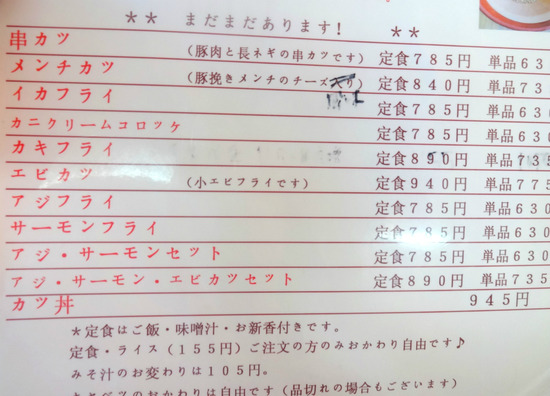 ** まだまだあります! **
串カツ (豚肉と長ネギの串カツです) 定食785円 単品630
メンチカツ (豚挽きメンチのチーズ 定食840円 単品73
イカフライ 定食785円 単品630
カニクリームコロッケ 定食785円 単品630
カキフライ 定食890円 単品735
エビカツ (小エビフライです) 定食940円 単品775
アジフライ 定食785円 単品630
サーモンフライ 定食785円 単品630
アジ・サーモンセット 定食785円 単品630
アジ・サーモン・エビカツセット 定食890円 単品735
カツ丼 945円
*定食はご飯・味噌汁・お新香付きです。
定食・ライス(155円)ご注文の方のみおかわり自由です♪
みそ汁のお変わりは105円。
キャベツのおかわりは自由です(品切れの場合もございます)